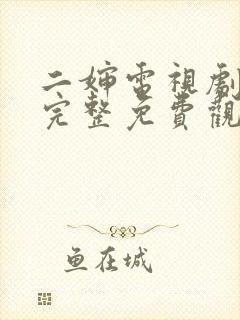 二婶電視劇
完整免費觀
鱼在城